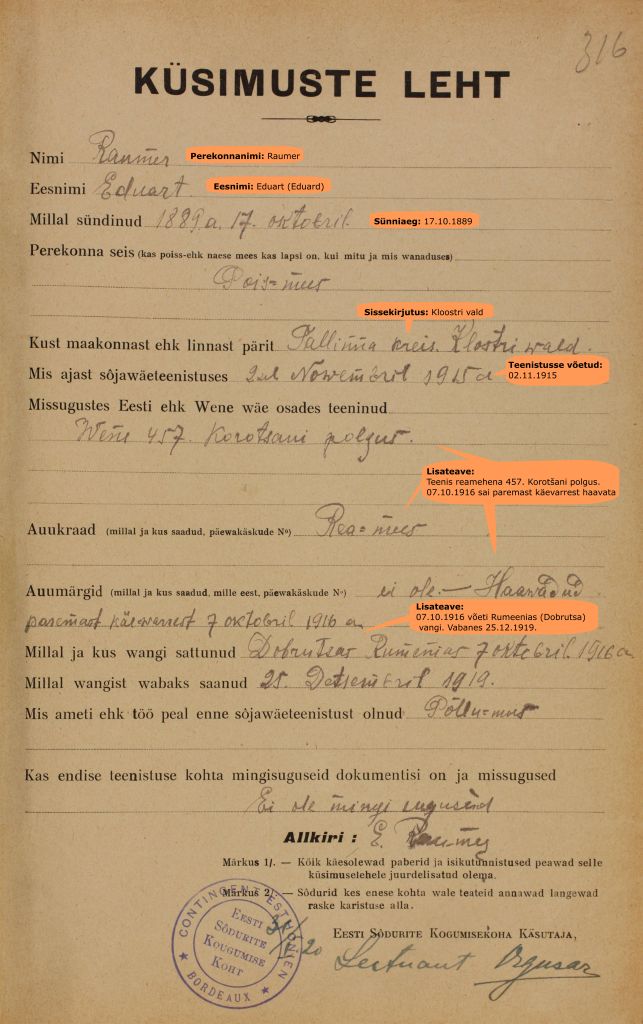 316
KÜSIMUSTE LEHT
Nimi Raumer Perekonnanimi: Raumer
Eesnimi Eduart. Eesnimi: Eduart (Eduard)
Millal sündinud 1889 a. 17. oktobril. Sünniaeg: 17.10.1889
Perekonna seis (kas poiss-ehk naese mees kas lapsi on, kui mitu ja mis wanaduses)
Pois=mees
Sissekirjutus: Kloostri vald
Kust maakonnast ehk linnast pärit Tallinna kreis. Klostri wald.
Mis ajast sõjawäeteenistuses 2sel Nowembril 1915 a
Teenistusse võetud:
02.11.1915
Missugustes Eesti ehk Wene wäe osades teeninud
Wene 457. Korotsani polgus.
Lisateave:
Teenis reamehena 457. Korotšani polgus.
07.10.1916 sai paremast käevarrest haavata
Auukraad (millal ja kus saadud, päewakäskude No) Rea=mees
Auumärgid (millal ja kus saadud, mille eest, päewakäskude No) ei ole.— Haawadud
paremast käewarrest 7 oktobril 1916 a
Lisateave:
07.10.1916 võeti Rumeenias (Dobrutsa)
vangi. Vabanes 25.12.1919.
Millal ja kus wangi sattunud Dobrutsas Rumenias 7 oktobril. 1916 a
Millal wangist wabaks saanud 25. Detsembril 1919.
Mis ameti ehk töö peal enne sõjawäeteenistust olnud Põllu=mees
Kas endise teenistuse kohta mingisuguseid dokumentisi on ja missugused
Ei ole mingi sugused
Allkiri : E. Raumer
Märkus 1/. — Kõik käesolewad paberid ja isikutunnistused peawad selle
küsimuselehele juurdelisatud olema.
Märkus 2/. — Sõdurid kes enese kohta wale teateid annawad langewad
raske karistuse alla.
CONTINGENT ESTHONIEN
EESTI
SÕDURITE
KOUGUMISE
KOHT
BORDEAUX
EESTI SÕDURITE KOGUMISEKOHA KÄSUTAJA,